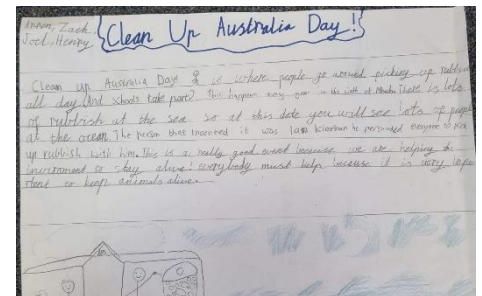 Arran, Zach,
Joel, Henry
Clean Up Australia Day!
Clean up Australia Day is where people go around picking up rubbish
all day And schools take part? This happens every year on the of March. There is lots
of rubbish at the sea so at this date you will see lots of people
at the ocean. The person that Invented it was Ian Kiernan he persuaded everyone to pick
up rubbish with him. This is a really good event because we are helping the
environment to stay alive! everybody must help because it is very impo
rtant to keep animals alive.